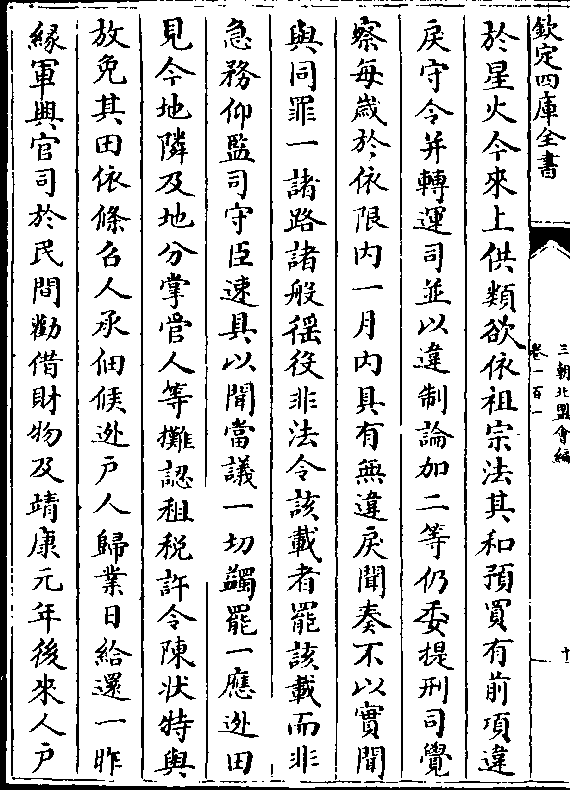 欽定四庫全書
三朝北盟會編
卷一百一
十
於星火今來上供類欲依祖宗法其和預買有前項違
戾守令并轉運司並以違制論加二等仍委提刑司覺
察每歲於依限内一月内具有無違戾聞奏不以實聞
與同罪一諸路諸般徭役非法令該載者罷該載而非
急務仰監司守臣速具以聞當議一切蠲罷一應逃田
見今地隣及地分掌管人等攤認租税許令陳狀特與
放免其田依條召人承佃候逃户人歸業日給還一昨
緣軍興官司於民間勸借財物及靖康元年後來人户